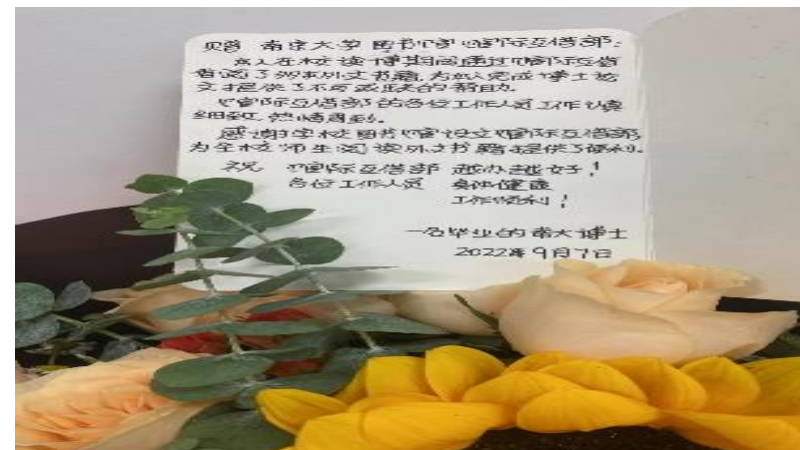 赠 南京大学图书馆馆际互借部:
本人在校读博期间通过馆际互借
借阅了多本外文书籍,为本人完成博士论
文提供了不可或缺的帮助。
馆际互借部的各位工作人员工作认真
细致,热情周到。
感谢学校图书馆设立馆际互借部
为全校师生阅读外文书籍提供了便利。
祝 馆际互借部 越办越好!
各位工作人员 身体健康
工作顺利!
一名毕业的南大博士
2022年9月7日